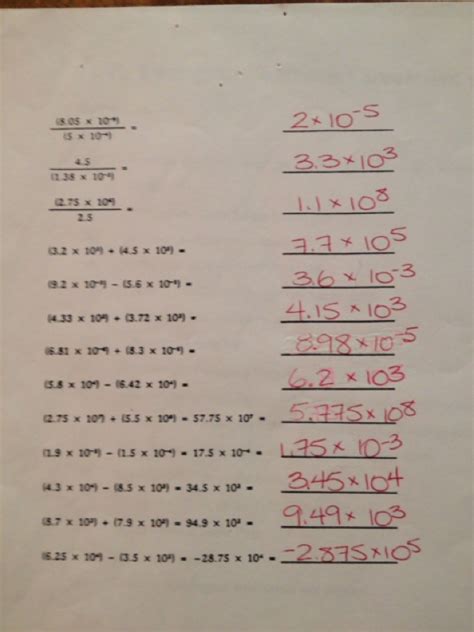 (8.05 × =  2 × 10⁻⁵
(5 × 10⁻⁴)
4.5 =  3.3 × 10³
(1.38 ×
(2.75 × =  1.1 × 10⁸
2.5
(3.2 × 10⁵) + (4.5 × 10⁵) =  7.7 × 10⁵
(9.2 × 10⁻³) − (5.6 × 10⁻³) =  3.6 × 10⁻³
(4.33 × + (3.72 × =  4.15 × 10³
(6.81 × + (8.3 × =  8.98 × 10⁻⁵
(5.8 × − (6.42 × =  6.2 × 10³
(2.75 × 10⁷) + (5.5 × 10⁸) = 57.75 × 10⁷ =  5.775 × 10⁸
(1.9 × 10⁻³) − (1.5 × 10⁻⁴) = 17.5 × 10⁻⁴ =  1.75 × 10⁻³
(4.3 × 10⁴) − (8.5 × 10³) = 34.5 × 10³ =  3.45 × 10⁴
(8.7 × 10³) + (7.9 × 10²) = 94.9 × 10² =  9.49 × 10³
(6.25 × 10⁴) − (3.5 × 10⁵) = −28.75 × 10⁴ =  −2.875 × 10⁵